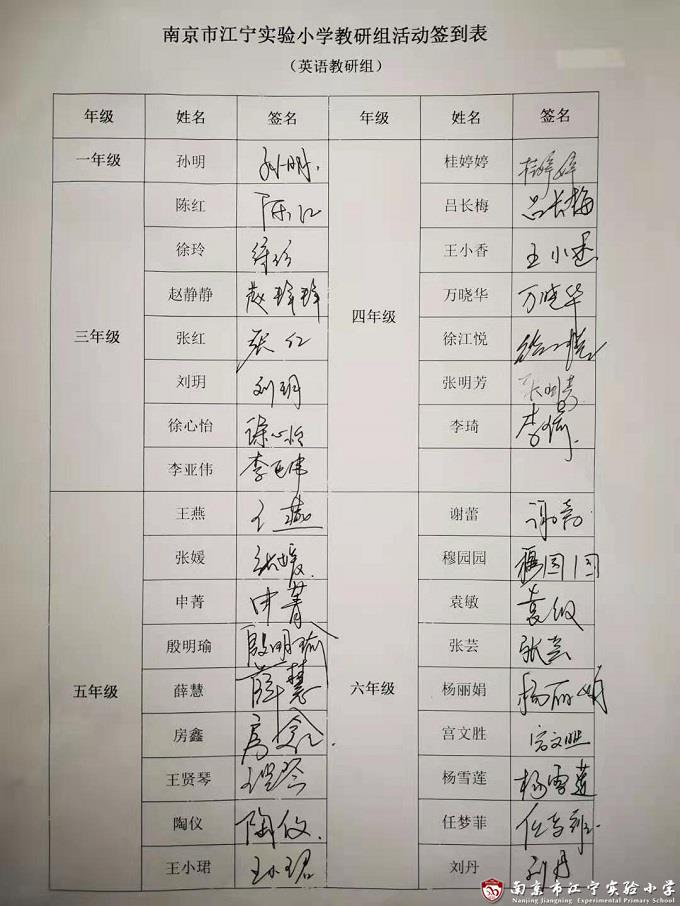 南京市江宁实验小学教研组活动签到表
（英语教研组）
年级 姓名 签名 年级 姓名 签名
一年级 孙明 孙明 四年级 桂婷婷 桂婷婷
三年级 陈红 陈红 吕长梅 吕长梅
徐玲 徐玲 王小香 王小香
赵静静 赵静静 万晓华 万晓华
张红 张红 徐江悦 徐江悦
刘玥 刘玥 张明芳 张明芳
徐心怡 徐心怡 李琦 李琦
李亚伟 李亚伟
五年级 王燕 王燕 六年级 谢蕾
张媛 张媛 穆园园 穆园园
申菁 申菁 袁敏 袁敏
殷明瑜 殷明瑜 张芸 张芸
薛慧 薛慧 杨丽娟 杨丽娟
房鑫 房鑫 宫文胜 宫文胜
王贤琴 杨雪莲 杨雪莲
陶仪 陶仪 任梦菲
王小珺 王小珺 刘丹 刘丹
南京市江宁实验小学
Nanjing Jiangning Experimental Primary School